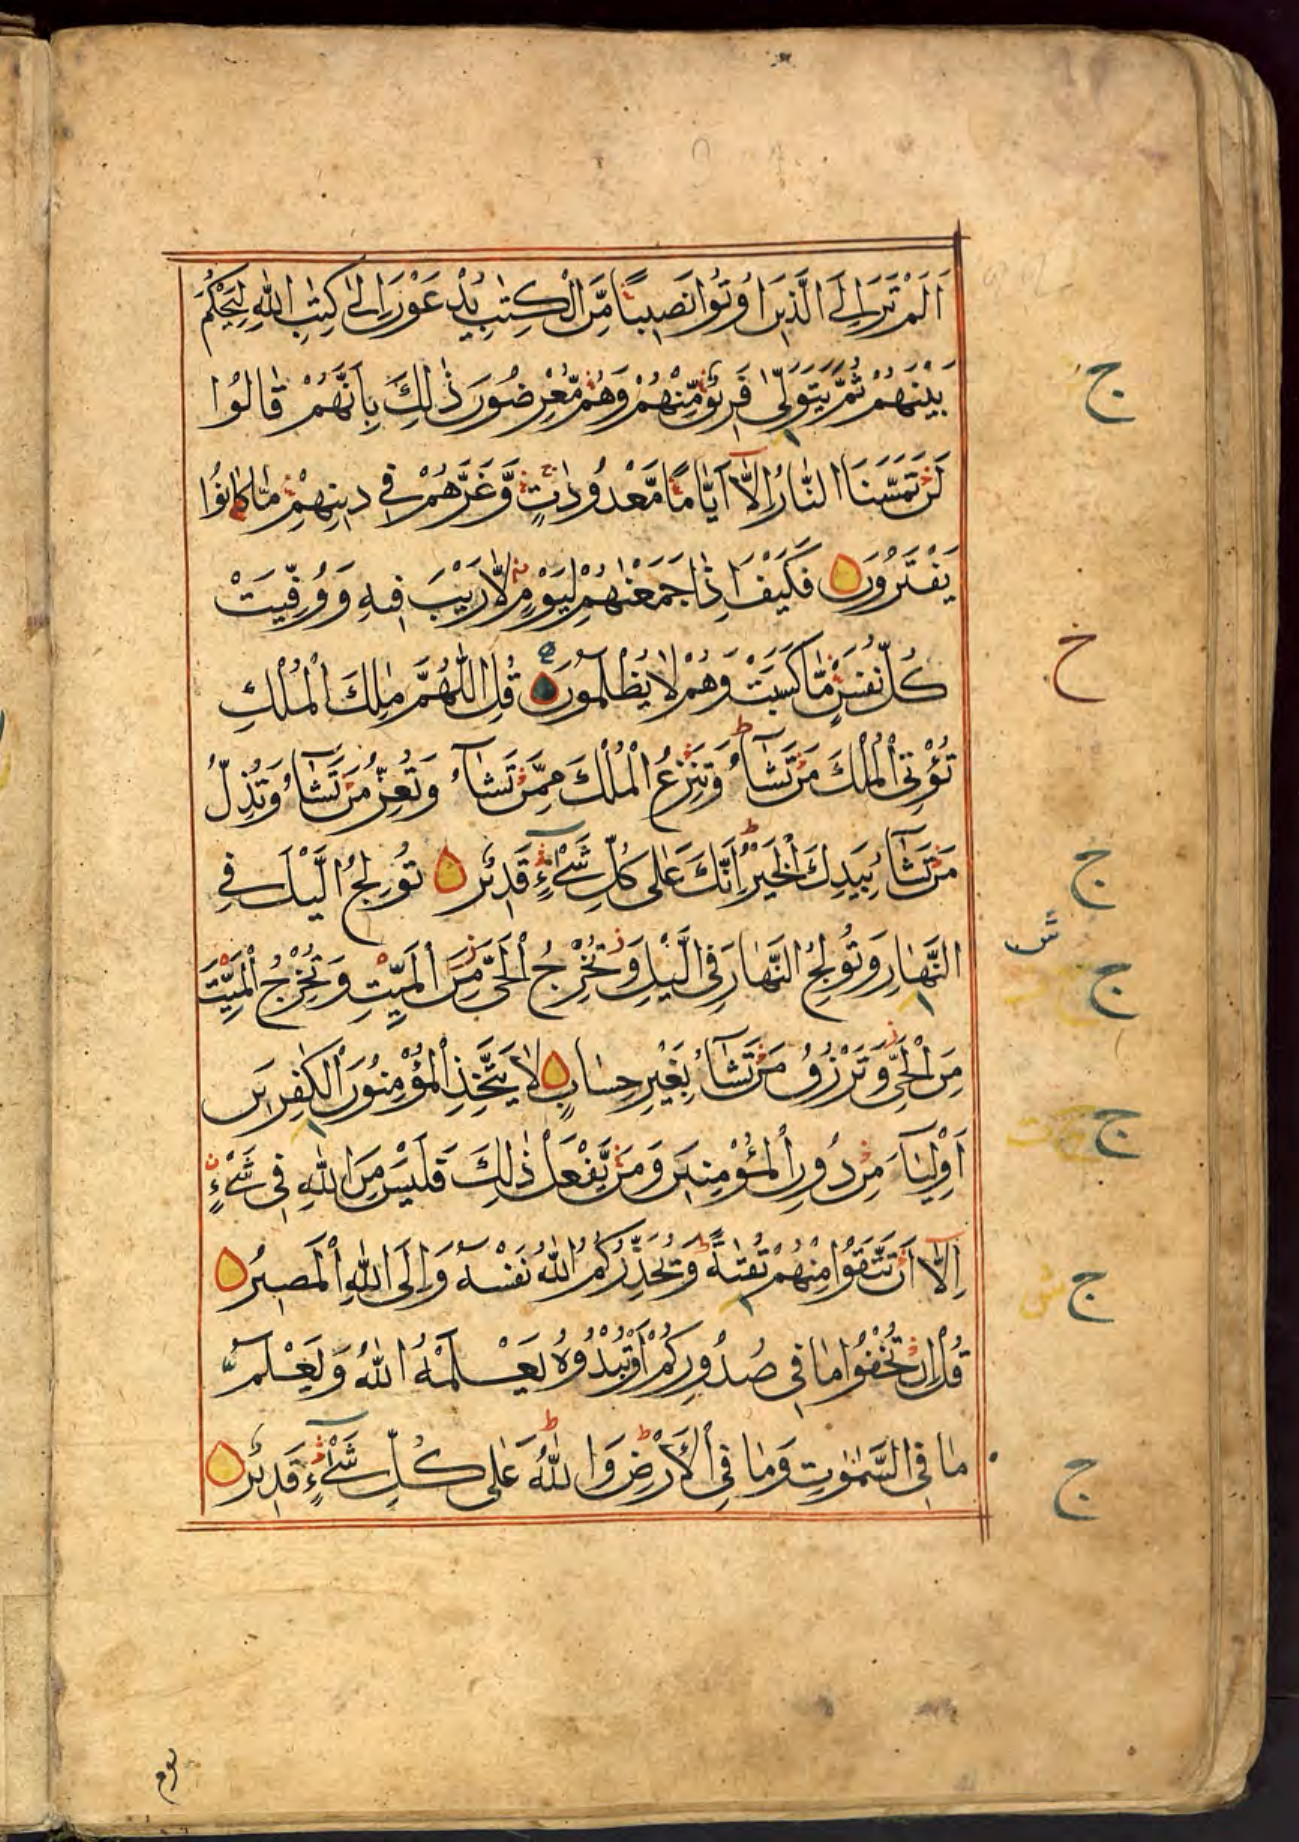 اَلَمْ تَرَ اِلَى الَّذِيْنَ اُوْتُوْا نَصِيْبًا مِّنَ الْكِتٰبِ يُدْعَوْنَ اِلٰى كِتٰبِ اللّٰهِ لِيَحْكُمَ
بَيْنَهُمْ ثُمَّ يَتَوَلّٰى فَرِيْقٌ مِّنْهُمْ وَهُمْ مُّعْرِضُوْنَ ذٰلِكَ بِاَنَّهُمْ قَالُوْا
لَنْ تَمَسَّنَا النَّارُ اِلَّآ اَيَّامًا مَّعْدُوْدٰتٍ وَّغَرَّهُمْ فِيْ دِيْنِهِمْ مَّا كَانُوْا
يَفْتَرُوْنَ فَكَيْفَ اِذَا جَمَعْنٰهُمْ لِيَوْمٍ لَّا رَيْبَ فِيْهِ وَوُفِّيَتْ
كُلُّ نَفْسٍ مَّا كَسَبَتْ وَهُمْ لَا يُظْلَمُوْنَ قُلِ اللّٰهُمَّ مٰلِكَ الْمُلْكِ
تُؤْتِي الْمُلْكَ مَنْ تَشَآءُ وَتَنْزِعُ الْمُلْكَ مِمَّنْ تَشَآءُ وَتُعِزُّ مَنْ تَشَآءُ وَتُذِلُّ
مَنْ تَشَآءُ بِيَدِكَ الْخَيْرُ اِنَّكَ عَلٰى كُلِّ شَيْءٍ قَدِيْرٌ تُوْلِجُ الَّيْلَ فِي
النَّهَارِ وَتُوْلِجُ النَّهَارَ فِي الَّيْلِ وَتُخْرِجُ الْحَيَّ مِنَ الْمَيِّتِ وَتُخْرِجُ الْمَيِّتَ
مِنَ الْحَيِّ وَتَرْزُقُ مَنْ تَشَآءُ بِغَيْرِ حِسَابٍ لَا يَتَّخِذِ الْمُؤْمِنُوْنَ الْكٰفِرِيْنَ
اَوْلِيَآءَ مِنْ دُوْنِ الْمُؤْمِنِيْنَ وَمَنْ يَّفْعَلْ ذٰلِكَ فَلَيْسَ مِنَ اللّٰهِ فِيْ شَيْءٍ
اِلَّآ اَنْ تَتَّقُوْا مِنْهُمْ تُقٰىةً وَيُحَذِّرُكُمُ اللّٰهُ نَفْسَهٗ وَاِلَى اللّٰهِ الْمَصِيْرُ
قُلْ اِنْ تُخْفُوْا مَا فِيْ صُدُوْرِكُمْ اَوْ تُبْدُوْهُ يَعْلَمْهُ اللّٰهُ وَيَعْلَمُ
مَا فِي السَّمٰوٰتِ وَمَا فِي الْاَرْضِ وَاللّٰهُ عَلٰى كُلِّ شَيْءٍ قَدِيْرٌ
ج
خ
ج
ش
ج
ج
ج
ج
يوم